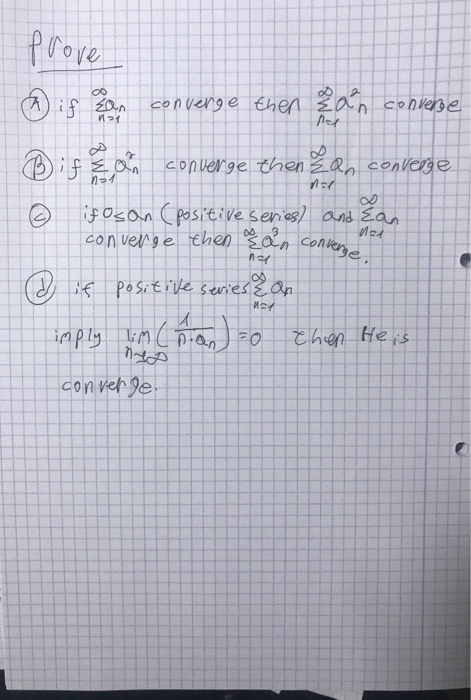 Prove
(A) if ∞ Σ n=1 an converge then ∞ Σ n=1 a²n converbe
(B) if ∞ Σ n=1 a²n converge then ∞ Σ n=1 an converge
(c) if 0≤an (positive series) and ∞ Σ n=1 an
converge then ∞ Σ n=1 a³n converge.
(d) if positive series ∞ Σ n=1 an
imply lim n→∞ (1/n·an) = 0 then He is
converge.